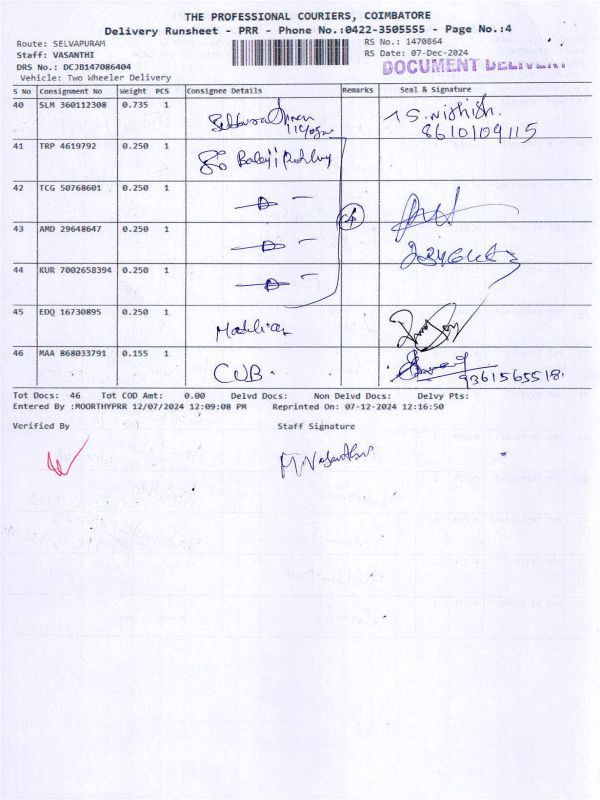 THE PROFESSIONAL COURIERS, COIMBATORE
Delivery Runsheet - PRR - Phone No.:0422-3505555 - Page No.:4
Route: SELVAPURAM
RS No.: 1470864
Staff: VASANTHI
RS Date: 07-Dec-2024
DRS No.: DCJB147086404
DOCUMENT DELIVERY
Vehicle: Two Wheeler Delivery
S No Consignment No Weight PCS Consignee Details Remarks Seal & Signature
40 SLM 360112308 0.735 1
S. Nishish.
8610109115
41 TRP 4619792 0.250 1
42 TCG 50768601 0.250 1
43 AMD 29648647 0.250 1
44 KUR 7002658394 0.250 1
45 EDQ 16730895 0.250 1
46 MAA 868033791 0.155 1 CUB.
9361565518.
Tot Docs: 46 Tot COD Amt: 0.00 Delvd Docs: Non Delvd Docs: Delvy Pts:
Entered By :MOORTHYPRR 12/07/2024 12:09:08 PM Reprinted On: 07-12-2024 12:16:50
Verified By Staff Signature
M Vasanthi